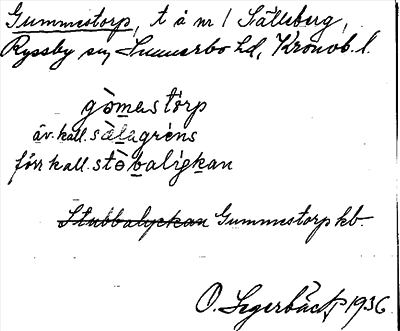 Gummestorp, t å nr 1 Sälleberg,
Ryssby sn, Sunnerbo hd, Kronob. l.
gòmestórp
äv. kall. sælagréns
förr kall. stòbalígkan
Stubbalyckan Gummestorp kb.
O. Segerbäck 1936